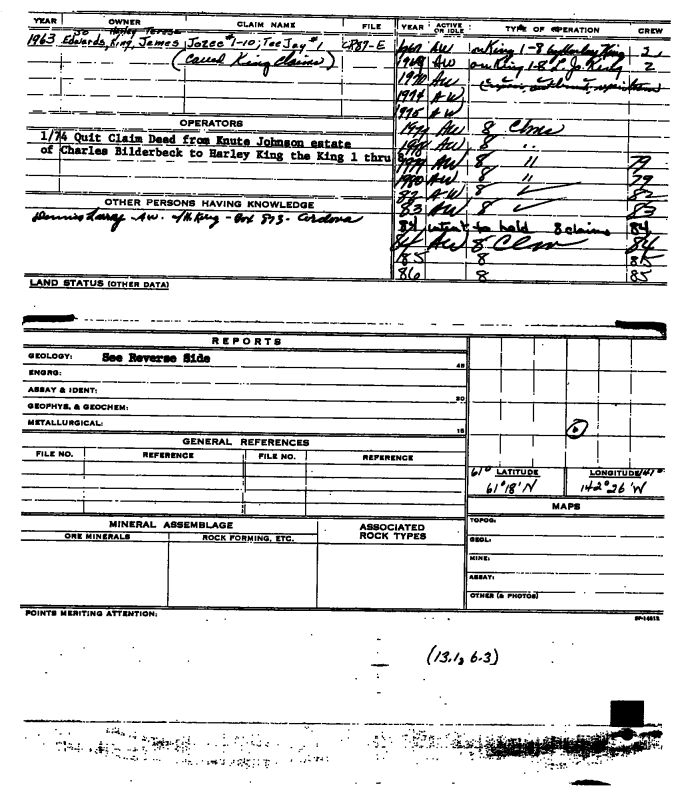 YEAR OWNER CLAIM NAME FILE YEAR ACTIVE OR IDLE TYPE OF OPERATION CREW
Jo Harley
1963 Edwards, King, James Jozee #1-10; TeeJay #1 C887-E AW on King 1-8 by Harley King 2
(Canal King Claims) AW on King 1-8 2
1970 AW
1974 AW
1975 AW
OPERATORS
AW 8 Clms
1/74 Quit Claim Deed from Knute Johnson estate
AW 8 "
of Charles Bilderbeck to Harley King the King 1 thru 8
1979 AW 8 " 79
1980 AW 8 " 79
82 AW 8 ✓ 82
OTHER PERSONS HAVING KNOWLEDGE
83 AW 8 ✓ 83
Dennis - AW - H. King - Box 873 - Cordova
84 intent to hold 8 claims 84
84 AW 8 Clm 84
85 8 85
86 8 85
LAND STATUS (OTHER DATA)
REPORTS
GEOLOGY: See Reverse Side
45
ENGRG:
ASSAY & IDENT:
30
GEOPHYS. & GEOCHEM:
METALLURGICAL:
15
GENERAL REFERENCES
FILE NO. REFERENCE FILE NO. REFERENCE
61° LATITUDE LONGITUDE 141°
61°18'N 142°26'W
MAPS
MINERAL ASSEMBLAGE ASSOCIATED ROCK TYPES
ORE MINERALS ROCK FORMING, ETC.
TOPOG:
GEOL:
MINE:
ASSAY:
OTHER (& PHOTOS)
POINTS MERITING ATTENTION:
(13.1, 6.3)